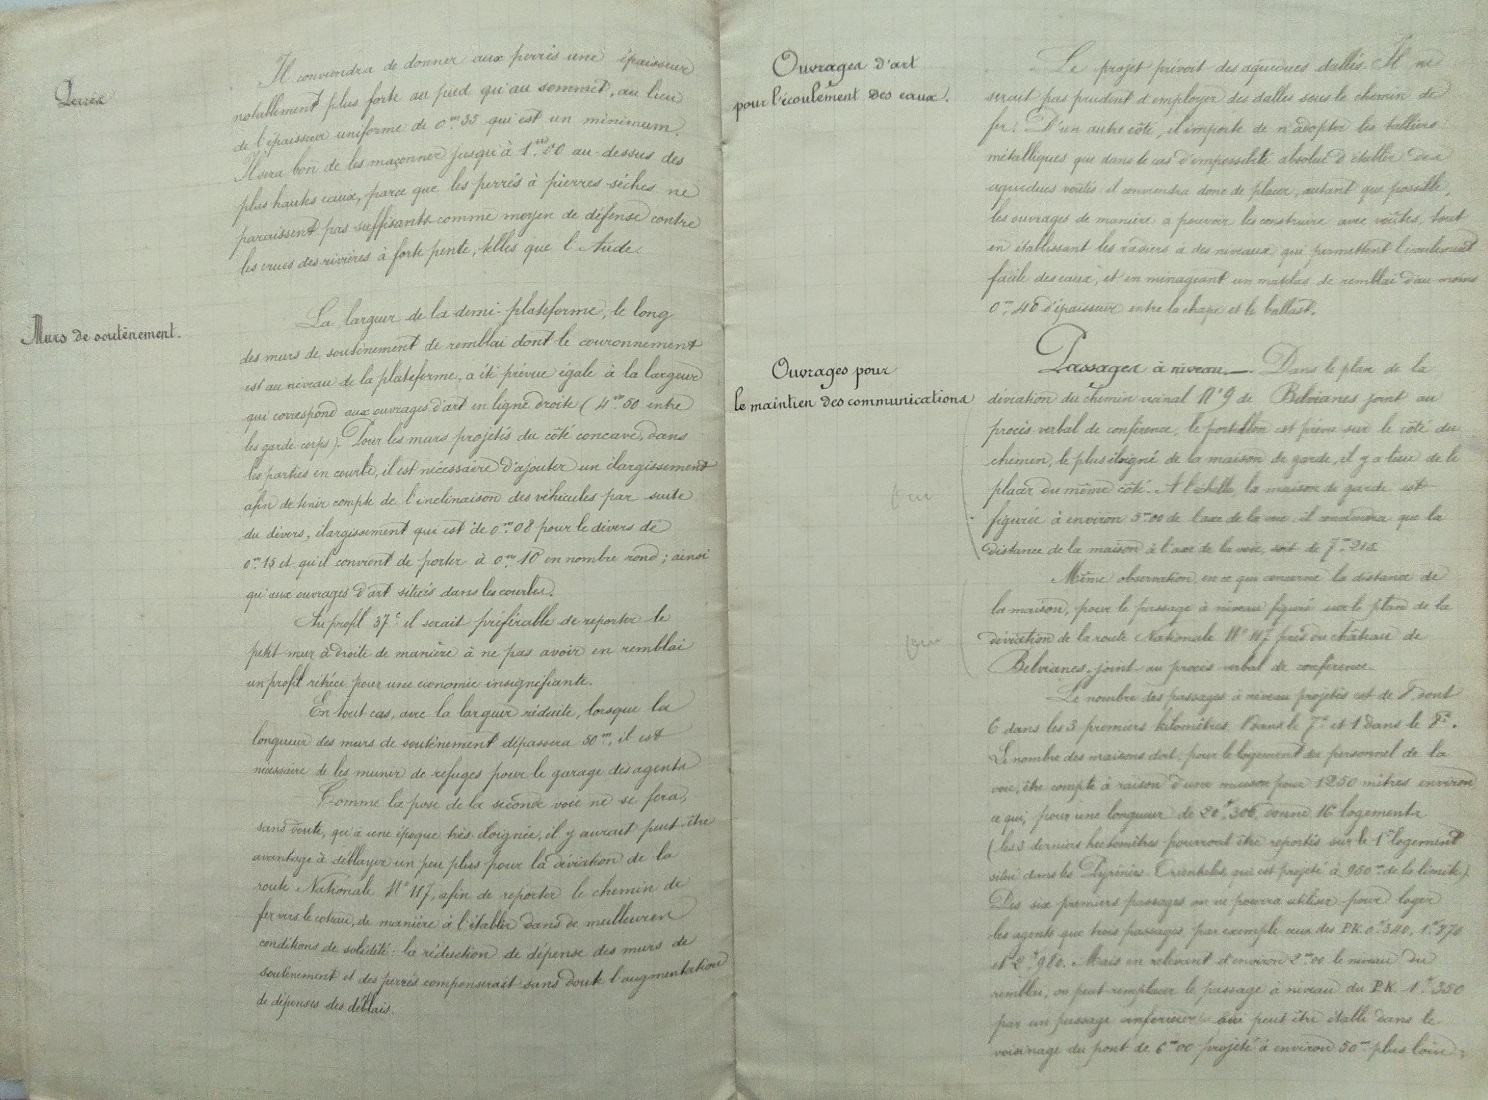 Perrés
Il conviendra de donner aux perrés une épaisseur
notablement plus forte au pied qu'au sommet, au lieu
de l'épaisseur uniforme de 0m35 qui est un minimum.
Il sera bon de les maçonner jusqu'à 1m00 au-dessus des
plus hautes eaux, parce que les perrés à pierres sèches ne
paraissent pas suffisants comme moyen de défense contre
les crues des rivières à forte pente, telles que l'Aude.
Murs de soutènement.
La largeur de la demi-plateforme, le long
des murs de soutènement de remblai dont le couronnement
est au niveau de la plateforme, a été prévue égale à la largeur
qui correspond aux ouvrages d'art en ligne droite (4m50 entre
les garde corps). Pour les murs projetés du côté concave, dans
les parties en courbe, il est nécessaire d'ajouter un élargissement
afin de tenir compte de l'inclinaison des véhicules par suite
du dévers, élargissement qui est de 0m08 pour le dévers de
0m15 et qu'il convient de porter à 0m10 en nombre rond; ainsi
qu'aux ouvrages d'art situés dans les courbes.
Au profil 37c il serait préférable de reporter le
petit mur à droite de manière à ne pas avoir en remblai
un profil rétréci pour une économie insignifiante.
En tout cas, avec la largeur réduite, lorsque la
longueur des murs de soutènement dépassera 50m, il est
nécessaire de les munir de refuges pour le garage des agents
Comme la pose de la seconde voie ne se fera,
sans doute, qu'à une époque très éloignée, il y aurait peut-être
avantage à déblayer un peu plus pour la déviation de la
route Nationale No 117, afin de reporter le chemin de
fer vers le coteau, de manière à l'établir dans de meilleures
conditions de solidité: la réduction de dépense des murs de
soutènement et des perrés compenserait sans doute l'augmentation
de dépenses des déblais.
Ouvrages d'art
pour l'écoulement des eaux.
Le projet prévoit des aqueducs dallés. Il ne
serait pas prudent d'employer des dalles sous le chemin de
fer. D'un autre côté, il importe de n'adopter les tabliers
métalliques que dans le cas d'impossibilité absolue d'établir des
aqueducs voûtés: il conviendra donc de placer, autant que possible,
les ouvrages de manière à pouvoir les construire avec voûtes, tout
en établissant les radiers à des niveaux qui permettent l'écoulement
facile des eaux, et en ménageant un matelas de remblai d'au moins
0m40 d'épaisseur entre la chape et le ballast.
Ouvrages pour
le maintien des communications
Passages à niveau.— Dans le plan de la
déviation du chemin vicinal No 9 de Belvianes joint au
procès verbal de conférence, le portillon est prévu sur le côté du
chemin, le plus éloigné de la maison de garde, il y a lieu de le
placer du même côté. A l'échelle, la maison de garde est
figurée à environ 5m00 de l'axe de la voie: il conviendra que la
distance de la maison à l'axe de la voie, soit de 7m
oui
Même observation, en ce qui concerne la distance de
la maison, pour le passage à niveau figuré sur le plan de la
déviation de la route Nationale No 117 près du château de
Belvianes, joint au procès verbal de conférence.
oui
Le nombre des passages à niveau projetés est de 8, dont
6 dans les 3 premiers kilomètres, 1 dans le 7e et 1 dans le 8e.
Le nombre des maisons doit, pour le logement du personnel de la
voie, être compté à raison d'une maison pour 1250 mètres environ
ce qui, pour une longueur de 20k306, donne 16 logements
(les 3 derniers hectomètres pourront être reportés sur le 1er logement
situé dans les Pyrénées Orientales, qui est projeté à 950m de la limite).
Des six premiers passages on ne pourra utiliser pour loger
les agents que trois passages, par exemple ceux des P.K. 0k340, 1k870
et 2k980. Mais en relevant d'environ 2m00 le niveau du
remblai, on peut remplacer le passage à niveau du P.K. 1k350
par un passage inférieur qui peut être établi dans le
voisinage du pont de 6m00 projeté à environ 50m plus loin;